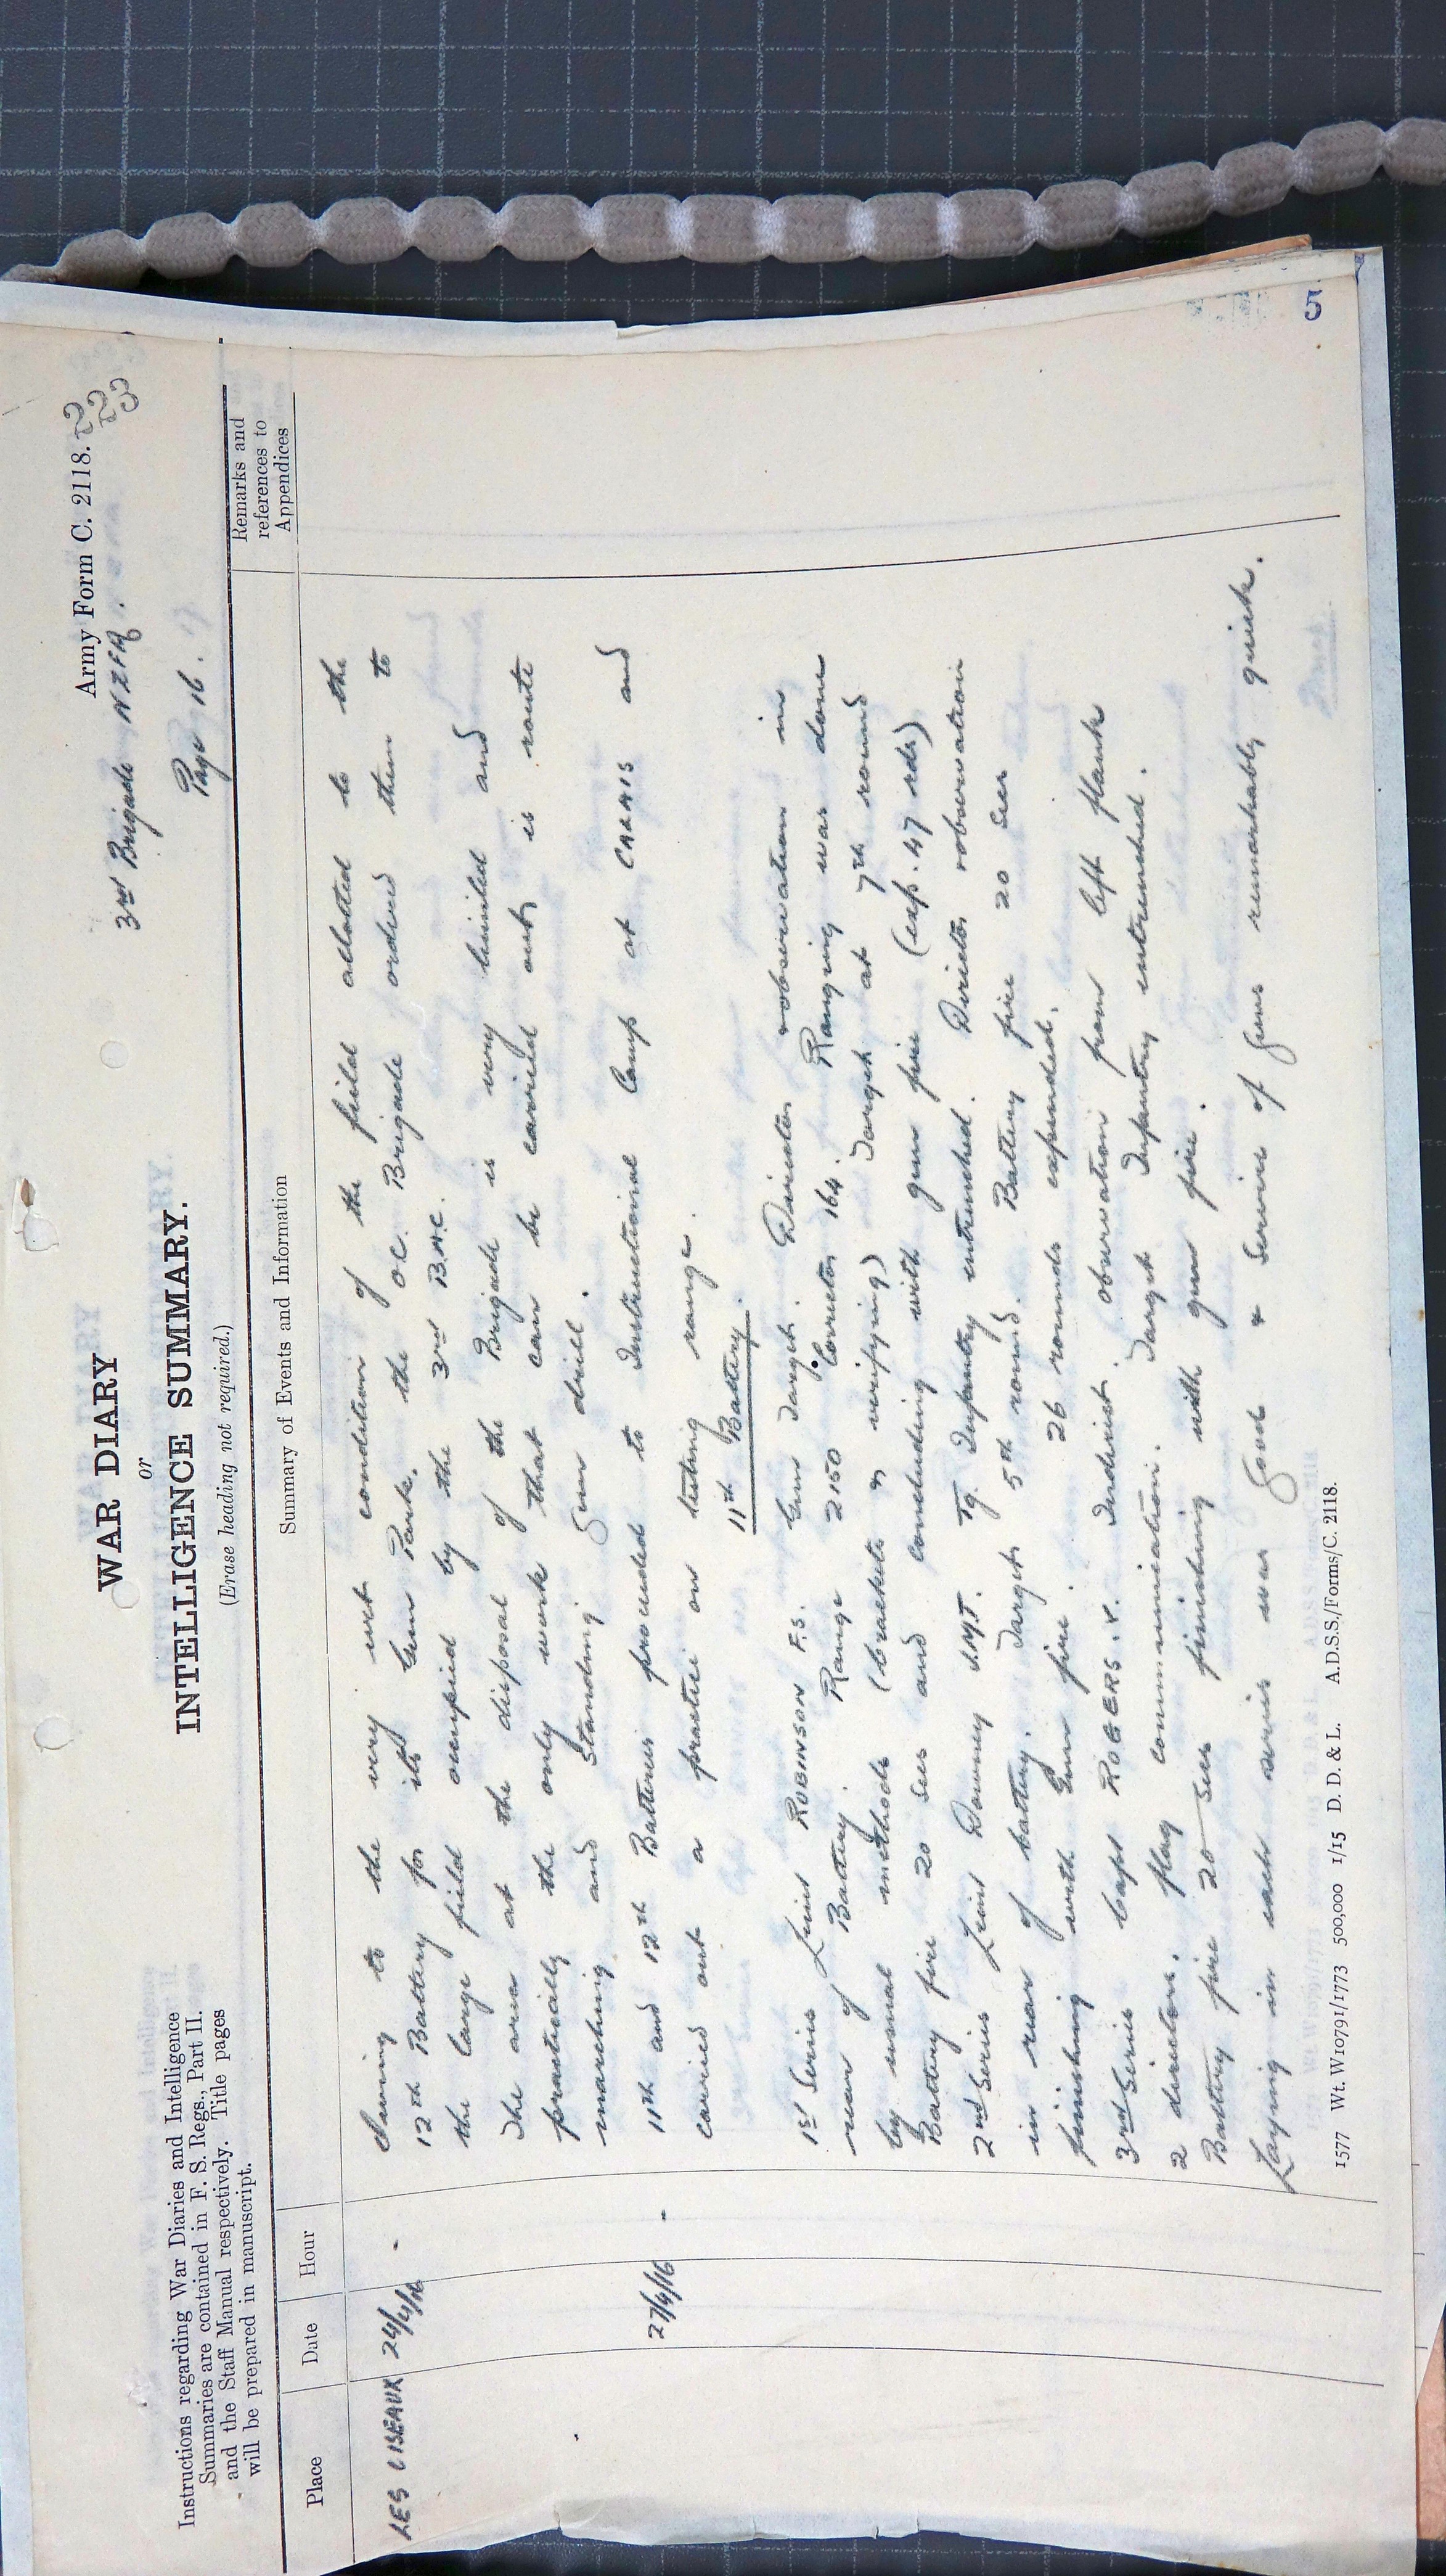 Army Form C. 2118.
223
WAR DIARY
or
INTELLIGENCE SUMMARY.
(Erase heading not required.)
3rd Brigade NZFA.
Page 16.
Instructions regarding War Diaries and Intelligence
Summaries are contained in F. S. Regs., Part II.
and the Staff Manual respectively. Title pages
will be prepared in manuscript.
Place Date Hour Summary of Events and Information Remarks and
references to
Appendices
LES CISEAUX 24/4/16 - Owing to the very wet condition of the field allotted to the
12th Battery for its Gun Park. the O.C. Brigade ordered them to
the large field occupied by the 3rd B.A.C.
The area at the disposal of the Brigade is very limited and
practically the only work that can be carried out is route
marching and Standing Gun drill.
27/4/16 - 11th and 12th Batteries proceeded to Instructional Camp at CALAIS and
carried out a practice on testing range.
11th Battery.
1st Series Lieut ROBINSON F.S. Gun Target. Director observation in
rear of Battery. Range 2150 Corrector 164. Ranging was done
by usual methods (brackets & verifying) Target at 7th round
Battery fire 20 secs and concluding with gun fire (exp. 47 rds)
2nd Series Lieut Downey J.M.T. Tg. Infantry entrenched. Director observation
in rear of battery. Target 5th round. Battery fire 20 secs
finishing with Gun fire. 26 rounds expended.
3rd Series Capt ROGERS. V. Indirect. observation from left flank
2 directors. flag communication. Target Infantry entrenched.
Battery fire 20 secs finishing with gun fire.
Laying in each series was Good & Service of Guns remarkably quick.
1577 Wt. W10791/1773 500,000 1/15 D. D. & L. A.D.S.S./Forms/C. 2118.
5